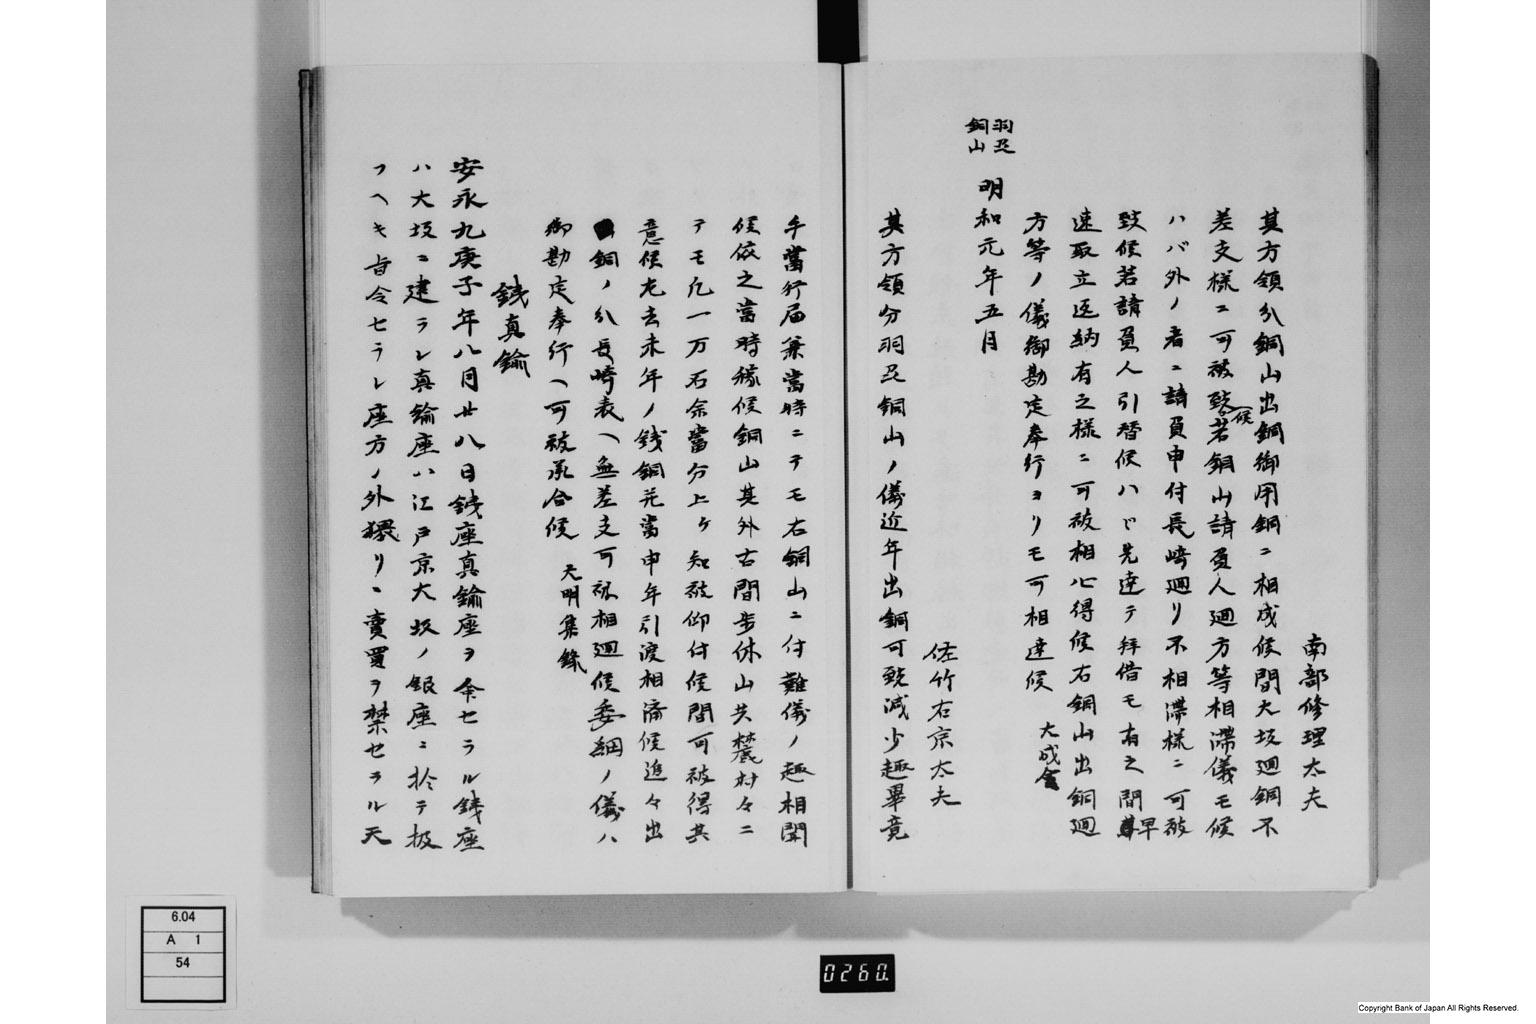 南部修理太夫
其方領分銅山出銅御用銅ニ相成候間大坂廻銅不
差支様ニ可被致候若銅山請負人廻方等相滞儀モ候
ハバ外ノ者ニ請負申付長崎廻リ不相滞様ニ可被
致候若請負人引替候ハヾ先達テ拝借モ有之間早
速取立返納有之様ニ可被相心得候右銅山出銅廻
方等ノ儀御勘定奉行ヨリモ可相達候
大成令
羽州
銅山
明和元年五月
佐竹右京太夫
其方領分羽州銅山ノ儀近年出銅可致減少趣畢竟
手當行届兼當時ニテモ右銅山ニ付難儀ノ趣相聞
候依之當時稼候銅山其外古間歩休山共麓村々ニ
テモ凡一万石余當分上ケ知被仰付候間可被得其
意候尤去未年ノ銭銅并當申年引渡相済候迄々出
銅ノ分長崎表ヘ無差支可被相廻候委細ノ儀ハ
御勘定奉行ヘ可被承合候
天明集録
銭真鍮
安永九庚子年八月廿八日銭座真鍮座ヲ命セラル銭座
ハ大坂ニ建ラレ真鍮座ハ江戸京大坂ノ銀座ニ於テ扱
フヘキ旨令セラレ座方ノ外猥リニ賣買ヲ禁セラル天
6.04
A 1
54
0260.
Copyright Bank of Japan All Rights Reserved.